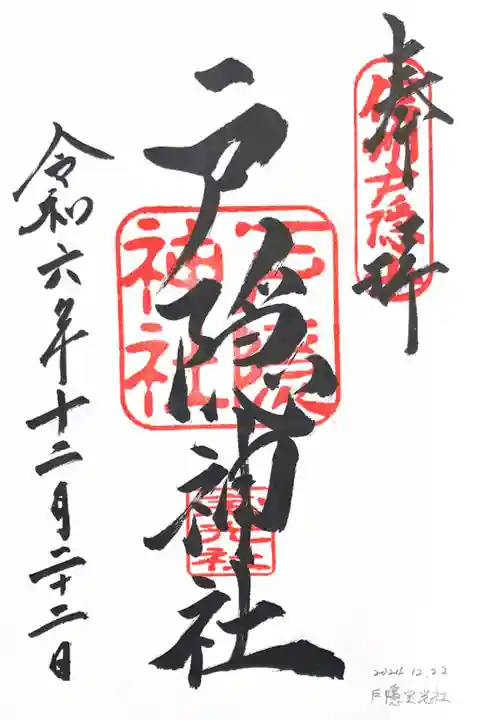 奉拝
信州戸隠
戸隠神社
戸隠神社
宝光社
令和六年十二月二十二日
2024 12.22
戸隠宝光社